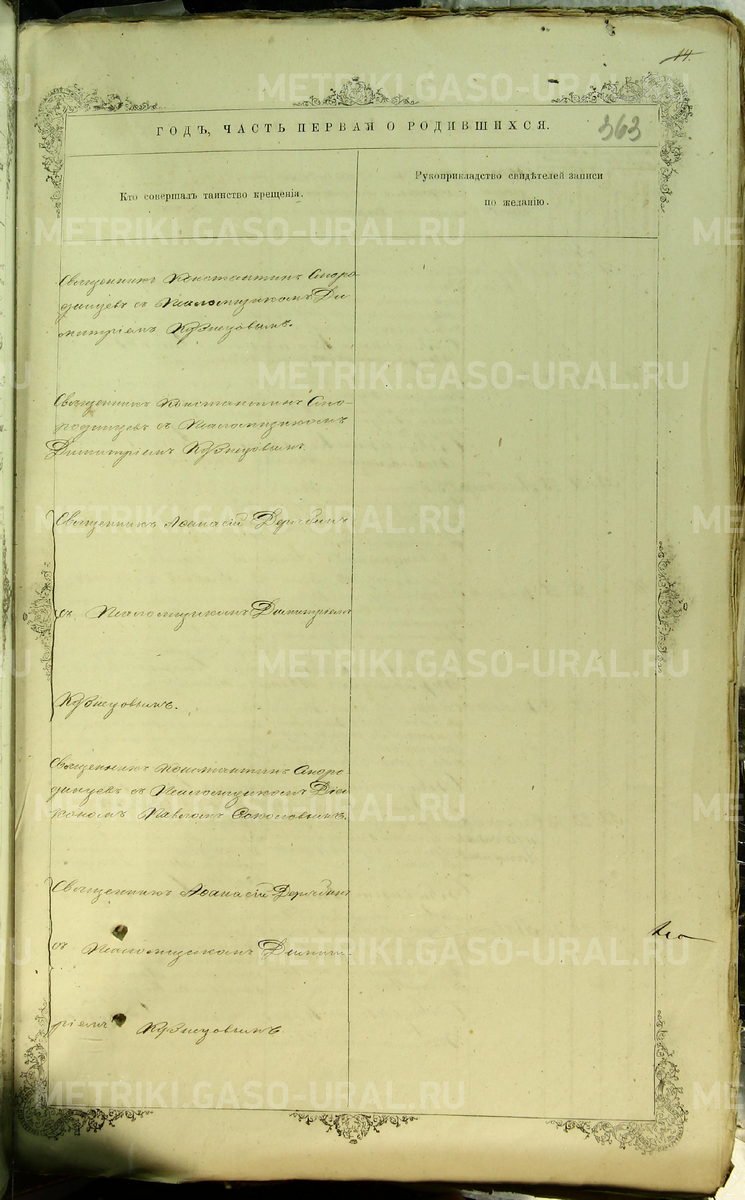 14.
ГОДЪ, ЧАСТЬ ПЕРВАЯ О РОДИВШИХСЯ.
363
Кто совершалъ таинство крещенія.
Рукоприкладство свидѣтелей записи
по желанію.
Священникъ Константинъ Словро
данцевъ съ Псаломщикомъ Ди
митріемъ Кузнецовымъ.
Священникъ Константинъ
съ Псаломщикомъ
Димитріемъ Кузнецовымъ
Священникъ Аѳанасій Дерябинъ
съ Псаломщикомъ Димитріемъ
Кузнецовымъ.
Священникъ Константинъ
съ Псаломщикомъ Діа
кономъ Павломъ Соколовымъ.
Священникъ Аѳанасій Дерябинъ
съ Псаломщикомъ Димит
ріемъ Кузнецовымъ
METRIKI.GASO-URAL.RU